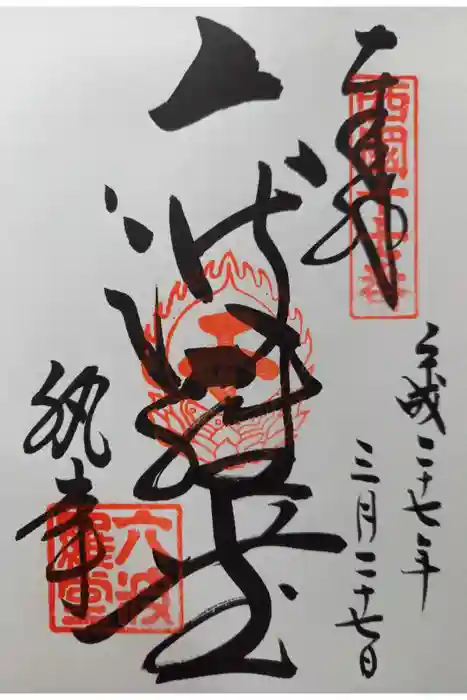 奉拝
西國十七番
平成二十七年
三月二十七日
六波羅堂
執事
六波
羅堂